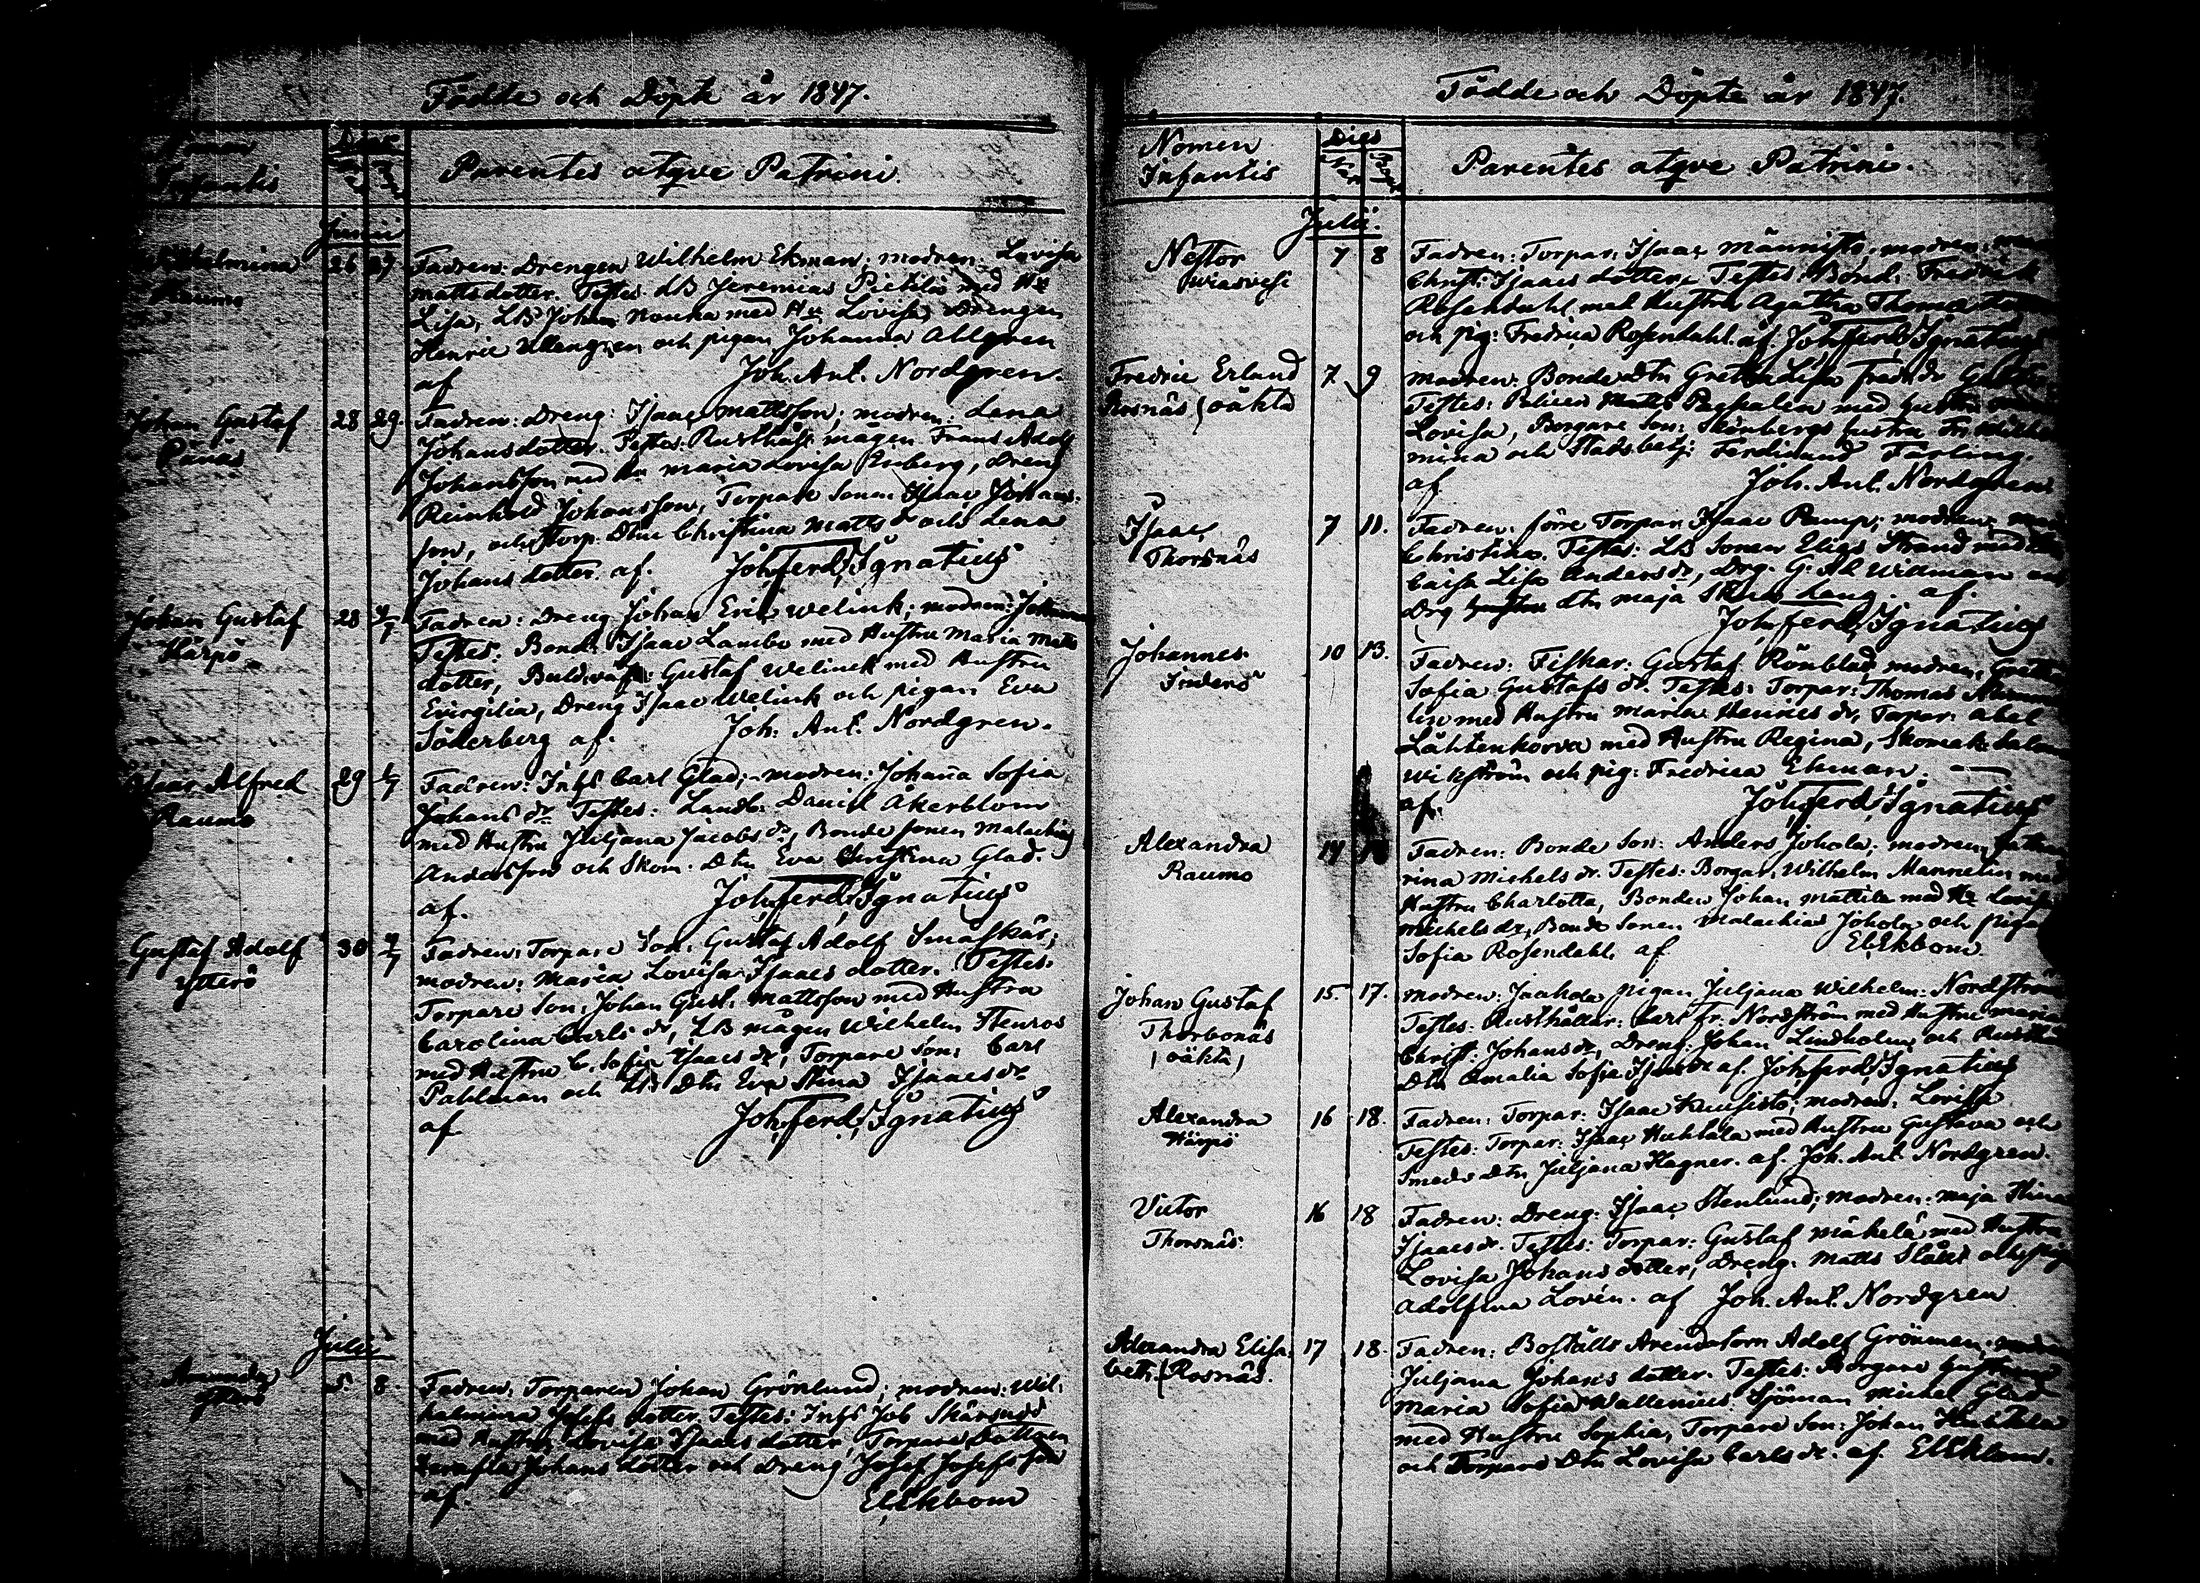 Födde och Döpte år 1847.
Nomen
Infantis
Dies
Parentes atqve Patrini.
Junii
Wilhelmina
Raumo
26 27
Fadren: Drengen Wilhelm Ekman, modren: Lovisa
Mattsdotter. Testes: LB Jeremias Pietilä med Hu
Lisa, LB Johan Nouka med Hu Lovisa, Drengen
Henric Ullengren och pigan Johanna Ahlgren
af Joh. Ant. Nordgren.
Johan Gustaf
Pånäs
28 29.
Fadren: Dreng: Isaac Mattsson; modren: Lena
Johansdotter. Testes: Rusthåll: mågen Frans Adolf
Johansson med Hu Maria Lovisa Enberg, Dreng
Reinhold Johansson, Torpare Sonen Isaac Johans-
son, och Torp: Dtn Christina Matts dr och Lena
Johansdotter. af. Joh. Ferd. Ignatius
Johan Gustaf
Härpö
28 4/7
Fadren: Dreng Johan Eric Welink; modren: Johanna
Testes: Bond: Isaac Lambo med Hustru Maria Matts
dotter, Gustaf Welinck med Hustru
Evirgilia, Dreng Isaac Welink och pigan Eva
Söderberg af. Joh. Ant. Nordgren.
Isaac Alfred
Raumo
29 1/7
Fadren: Inhs Carl Glad; modren: Johanna Sofia
Johans dr Testes: Landb. David Åkerblom
med Hustru Juljana Jacobs dr, Bonde sonen Malachias
Andersson och Skom. Dtn Eva Christina Glad.
af. Joh. Ferd. Ignatius
Gustaf Adolf
Ytterö
30 4/7
Fadren: Torpare Son: Gustaf Adolf Småskär;
modren: Maria Lovisa Isaacs dotter. Testes:
Torpare Son: Johan Gust: Mattsson med Hustru
Carolina Carls dr, LB mågen Wilhelm Stenros
med Hustru C. Sofia Isaacs dr, Torpare Son: Carl
Pahlman och LB Dtn Eva Stina Isaacs dr
af Joh. Ferd. Ignatius
Julii
Amanda
Ytterö
5. 8.
Fadren: Torparen Johan Grönlund; modren: Wil-
helmina Josefs dotter. Testes: Inhs Job Skärsudd
med Hustru Lovisa Isaacs dotter, Torpare Dottren
Serafia Johans dotter och Dreng Josef Josefsson
af. El Ekbom
Födde och Döpte år 1847.
Nomen
Infantis
Dies
Parentes atqve Patrini.
Julii.
Nestor
7 8
Fadren: Torpar: Isaac Männistö, modren:
Christ: Isaacs dotter. Testes: Bond: Fredrik
Rosendahl med Hustru Agatha Thomas
och pig: Fredrica Rosendahl. af. Joh. Ferd. Ignatius
Fredric Erland
Rosnäs (oäkta
7 9
Modren: Bonde Dtn Greta Lisa Fredr dr
Testes: Matts Paskalin med hustru
Lovisa, Borgare Son: Stenbergs hustru Fr. Wilhel
mina och Stadsbetj: Ferdinand Färling.
af Joh. Ant. Nordgren
Isaac
Thorsnäs
7 11.
Fadren: förre Torpar: Isaac Pamp; modren:
Christina. Testes: LB Sonen Elias Strand med
Caisa Lisa Anders dr, Drg. G. Ad. Widman
Drg dtn Maja Stina Lang. af.
Joh. Ferd. Ignatius
Johannes
Inderö
10 13.
Fadren: Fiskar: Gustaf Rönblad, modren, Greta
Sofia Gustafs dr. Testes: Torpar: Thomas
lin med Hustru Maria Henrics dr, Torpar: Abel
Lähtenkorva med Hustru Regina, Skomak: Salom
Wikström och pig: Fredrica Ekman.
af. Joh. Ferd. Ignatius
Alexandra
Raumo
14
Fadren: Bonde Son: Anders Johola; modren: Catha
rina Michels dr. Testes: Borgar: Wilhelm Mannelin med
Hustru Charlotta, Bonden Johan Mattila med Hu Lovisa
Michels dr, Bonde Sonen Malachias Johola och pigan
Sofia Rosendahl. af El Ekbom.
Johan Gustaf
Thorbonäs
(oäkta)
15. 17.
Modren: pigan Juljana Wilhelm: Nordström
Testes: Rusthållar: Carl Fr. Nordström med Hustru Maria
Christ: Johans dr, Dreng: Johan Lindholm och Rusth
Dtn Amalia Sofia Isaacs dr af. Joh. Ferd. Ignatius
Alexandra
Härpö
16 18.
Fadren: Torpar: Isaac Kuusisto; modren: Lovisa
Testes: Torpar: Isaac Huhtala med Hustru Gustava och
Smeds Dtn Juljana Hagner. af Joh. Ant. Nordgren.
Victor
Thorsnäs.
16 18
Fadren: Dreng: Isaac Stenlund; modren: Maja Stina
Isaacs dr. Testes: Torpar: Gustaf Mäkelä med Hustru
Lovisa Johans dotter, Dreng: Matts Slätt och pig
Adolfina Lovén. af Joh. Ant. Nordgren
Alexandra Elisa-
beth (Rosnäs.
17 18.
Fadren: Boställs Arendatorn Adolf Grönman; modren
Juljana Johans dotter. Testes: Borgare
Maria Sofia Wallenius, Sjöman Michel Glad
med Hustru Sophia, Torpare Son: Johan Huhtala
och Torpare Dtn Lovisa Carls dr. af. El Ekbom.